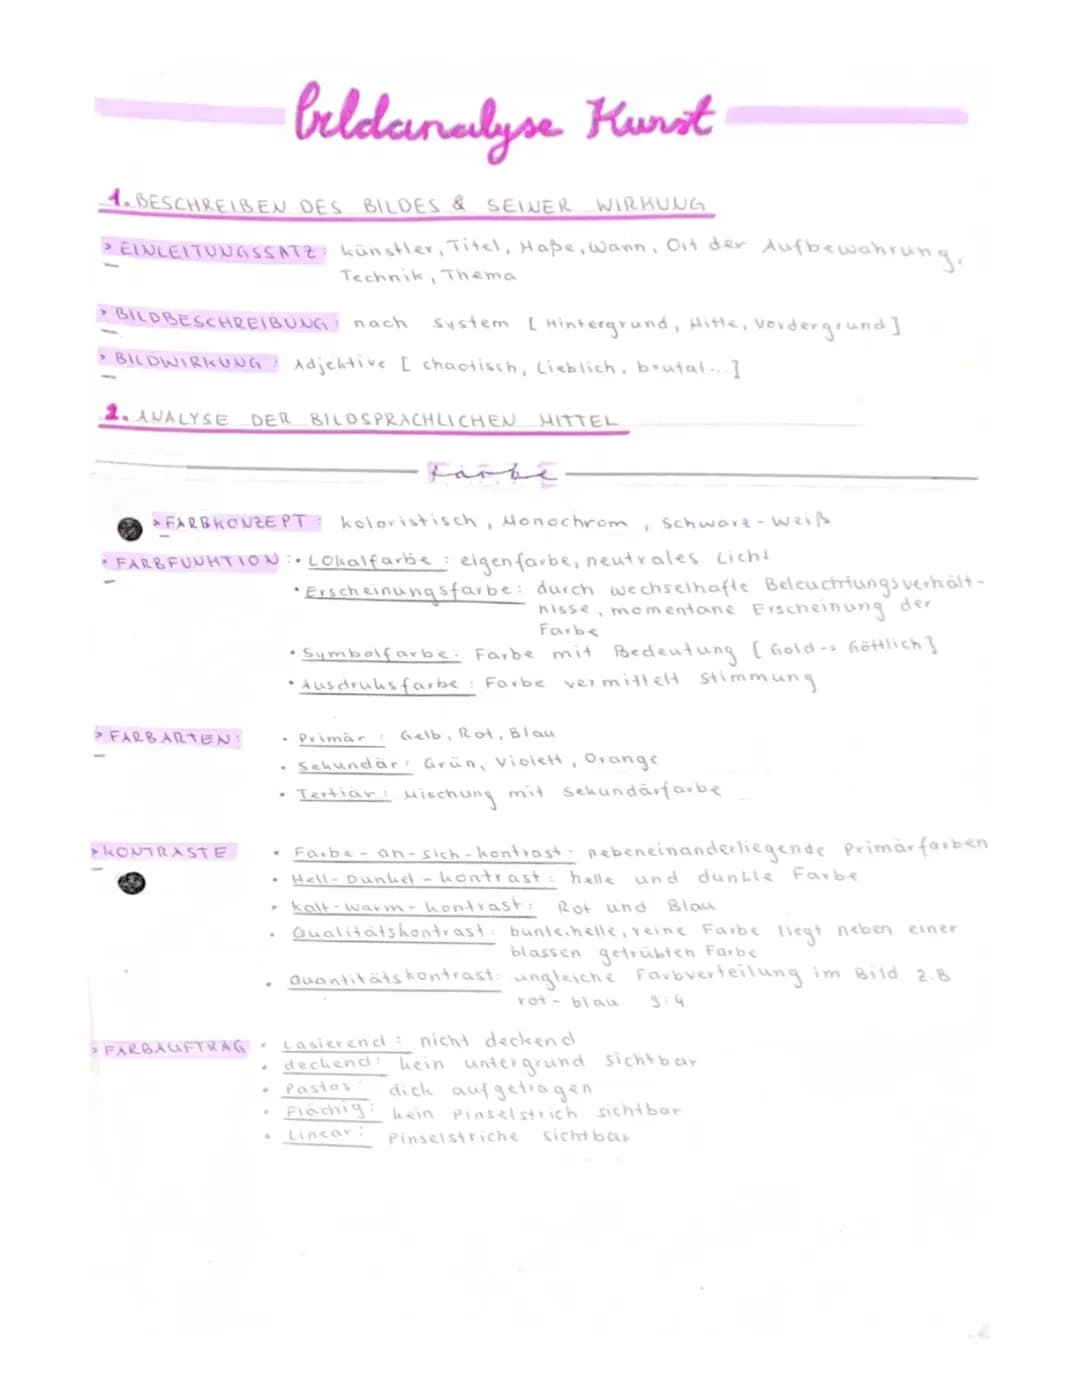 Bildanalyse Kunst
1. BESCHREIBEN DES BILDES & SEINER WIRKUNG
> EINLEITUNGSSATZ: Künstler, Titel, Maße, Wann, Ort der Aufbewahrung,
Technik, Thema
> BILDBESCHREIBUNG: nach System [Hintergrund, Mitte, Vordergrund]
> BILDWIRKUNG: Adjektive [chaotisch, Lieblich, brutal...]
2. ANALYSE DER BILDSPRACHLICHEN MITTEL
Farbe
> FARBKONZEPT: koloristisch, Monochrom, Schwarz-Weiß
• FARBFUNKTION: • Lokalfarbe: eigenfarbe, neutrales Licht
• Erscheinungsfarbe: durch wechselhafte Beleuchtungsverhält-
nisse, momentane Erscheinung der
Farbe
• Symbolfarbe: Farbe mit Bedeutung [Gold -> Göttlich]
• Ausdruksfarbe: Farbe vermittelt Stimmung
> FARBARTEN: • Primär: Gelb, Rot, Blau
• Sekundär: Grün, Violett, Orange
• Tertiär: Mischung mit Sekundärfarbe
> KONTRASTE • Farbe-an-sich-kontrast: nebeneinanderliegende Primärfarben
• Hell-Dunkel-kontrast: helle und dunkle Farbe
• Kalt-warm-kontrast: Rot und Blau
• Qualitätskontrast: bunte, helle, reine Farbe liegt neben einer
blassen getrübten Farbe
• Quantitätskontrast: ungleiche Farbverteilung im Bild z.B
rot-blau 9:4
> FARBAUFTRAG • Lasierend: nicht deckend
• deckend: kein untergrund sichtbar
• Pastos: dick aufgetragen
• Flächig: kein Pinselstrich sichtbar
• Linear: Pinselstriche sichtbar